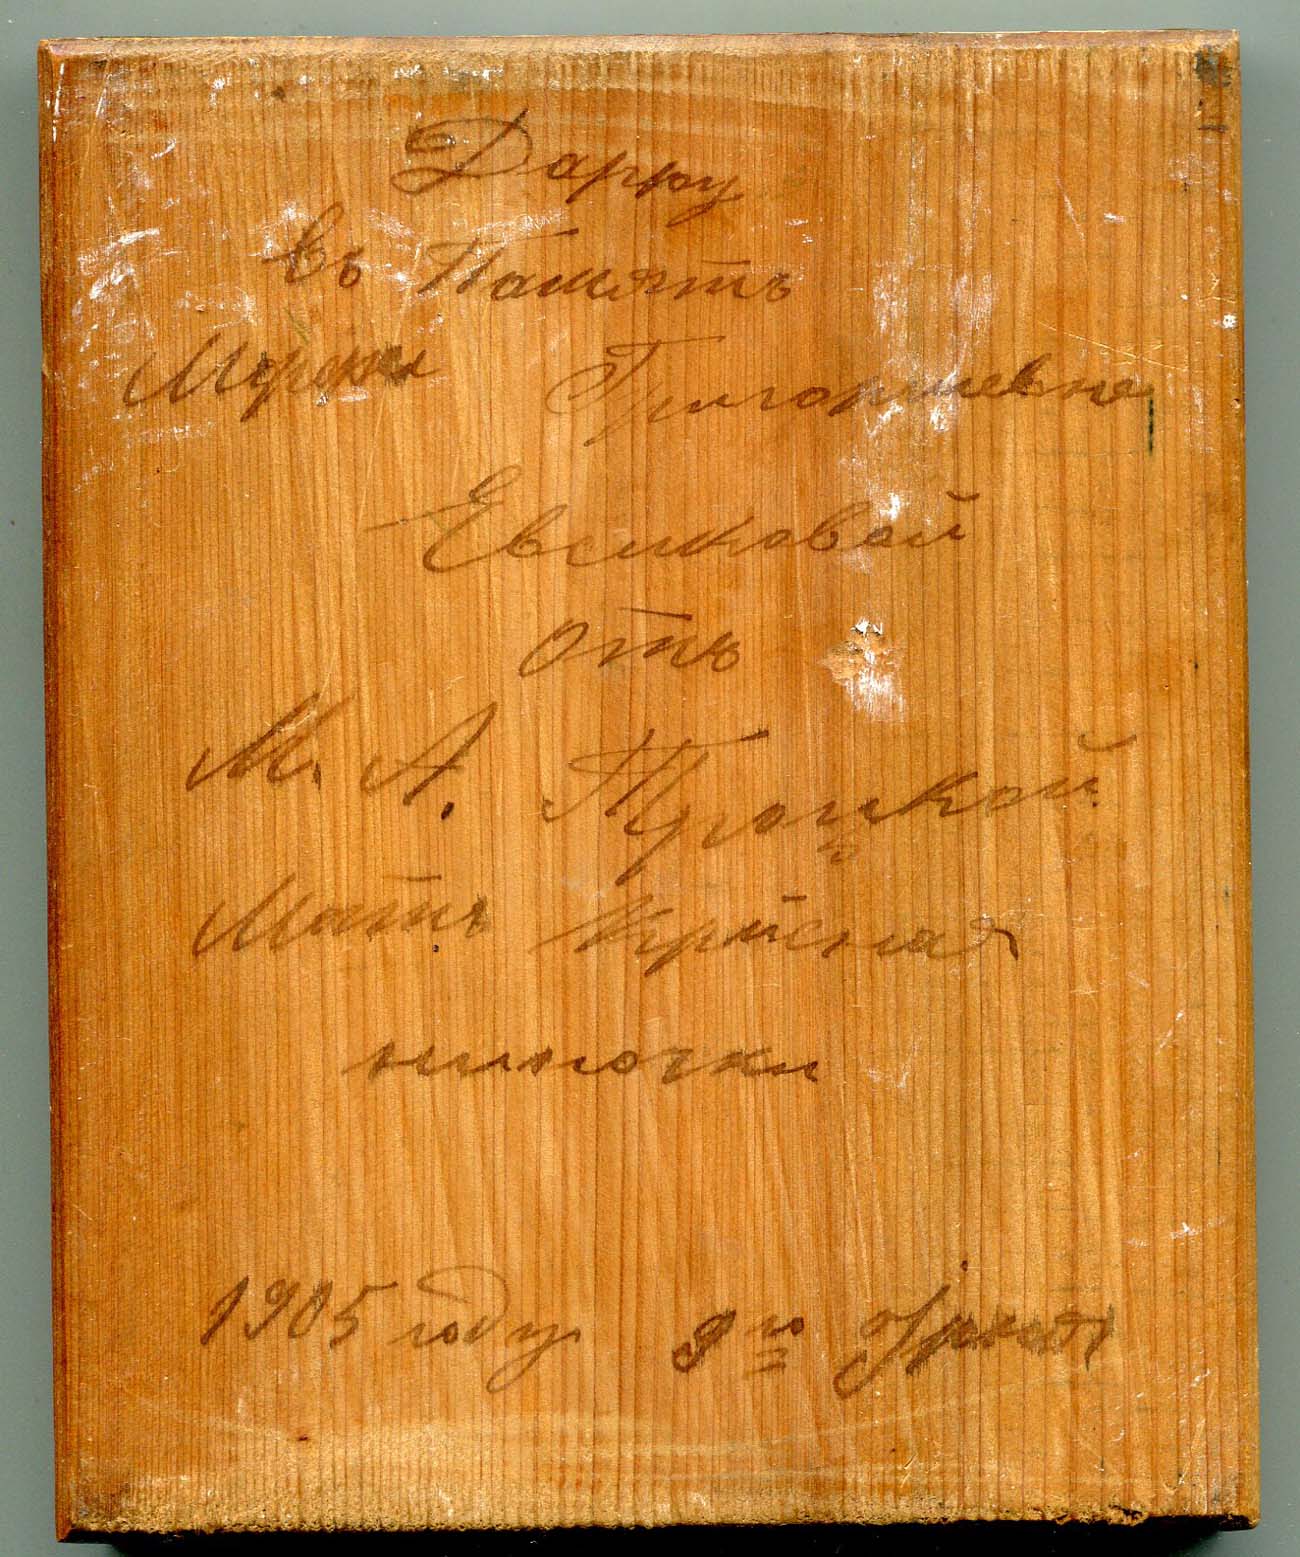 Дарру
въ Память
Марии Григорьевне
Евсиковой
отъ
М. А. Троицкой
Мать Крёсная
ниночки
1905 году 9го